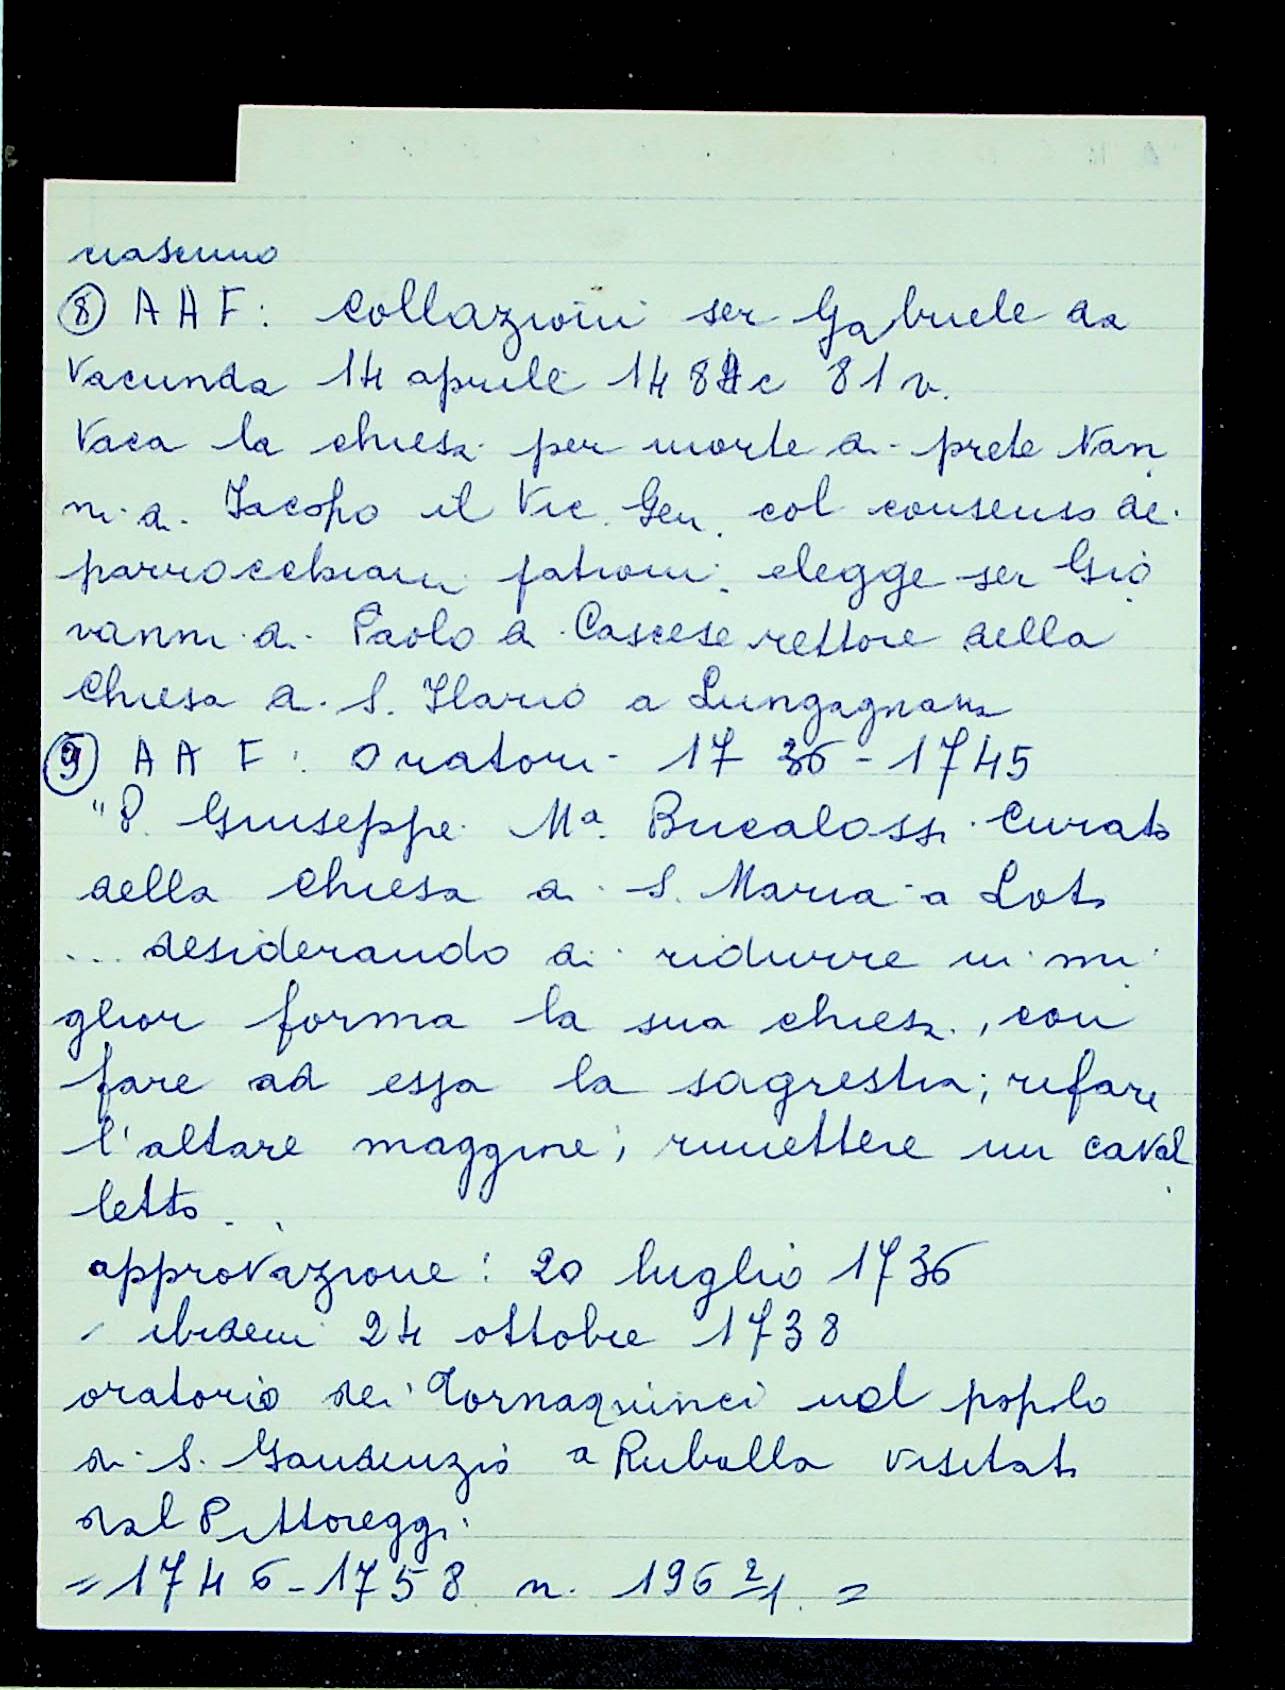 ciascuno
⑧ AAF: Collazioni ser Gabriele da
Vacunda 14 aprile 148 c 81 v.
Vaca la chiesa per morte di prete Nan
ni di Jacopo il Vic. Gen. col consenso dei
parrocchiani patroni elegge ser Gio
vanni di Paolo da Cascese rettore della
Chiesa di S. Ilario a Lungagnana
⑨ AAF: Oratori 1736-1745
"P. Giuseppe Mª. Bucalossi Curato
della Chiesa di S. Maria a Loto
... desiderando di ridurre in mi
glior forma la sua chiesa, con
fare ad essa la sagrestia; rifare
l'altare maggiore; rimettere un caval
letto..
approvazione: 20 luglio 1736
- ibidem 24 ottobre 1738
oratorio dei Tornaquinci nel popolo
di S. Gaudenzio a Ruballa visitato
dal Pittoreggi
= 1746-1758 n. 196 2/1. =